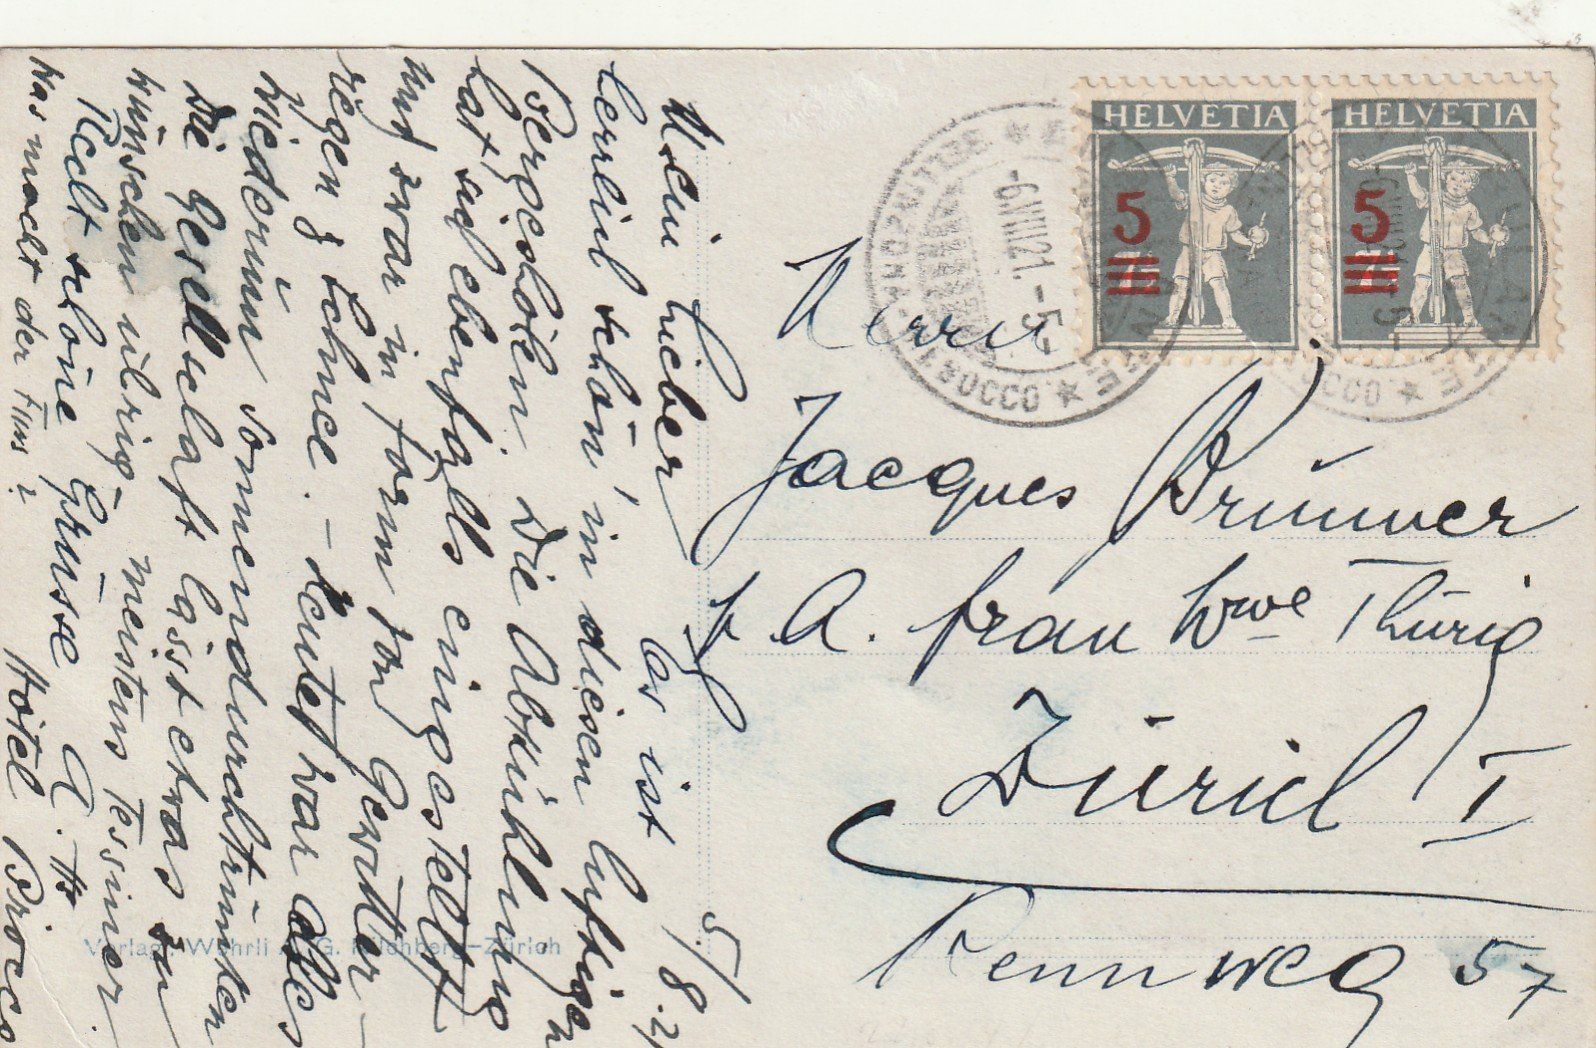 5./8.21
Mein Lieber
Es ist
herrlich schön, in diesen luftigen
Bergeshöhen. Die Abkühlung
hat sich ebenfalls eingestellt
und zwar in Form von Gewitter-
regen & Schnee. – Heute war alles
wiederum sonnendurchtrunken
Die Gesellschaft lässt etwas zu
wünschen übrig, meistens Tessiner.
Recht schöne Grüsse
Was macht der Fuss?
Hôtel Brocco
HELVETIA
5
HELVETIA
5
-6.VIII.21.-5
Herrn
Jacques Brunner
p. A. Frau Wwe Thürig
Zürich I
Rennweg 57
Verlag: Wehrli A.G. Kilchberg-Zürich